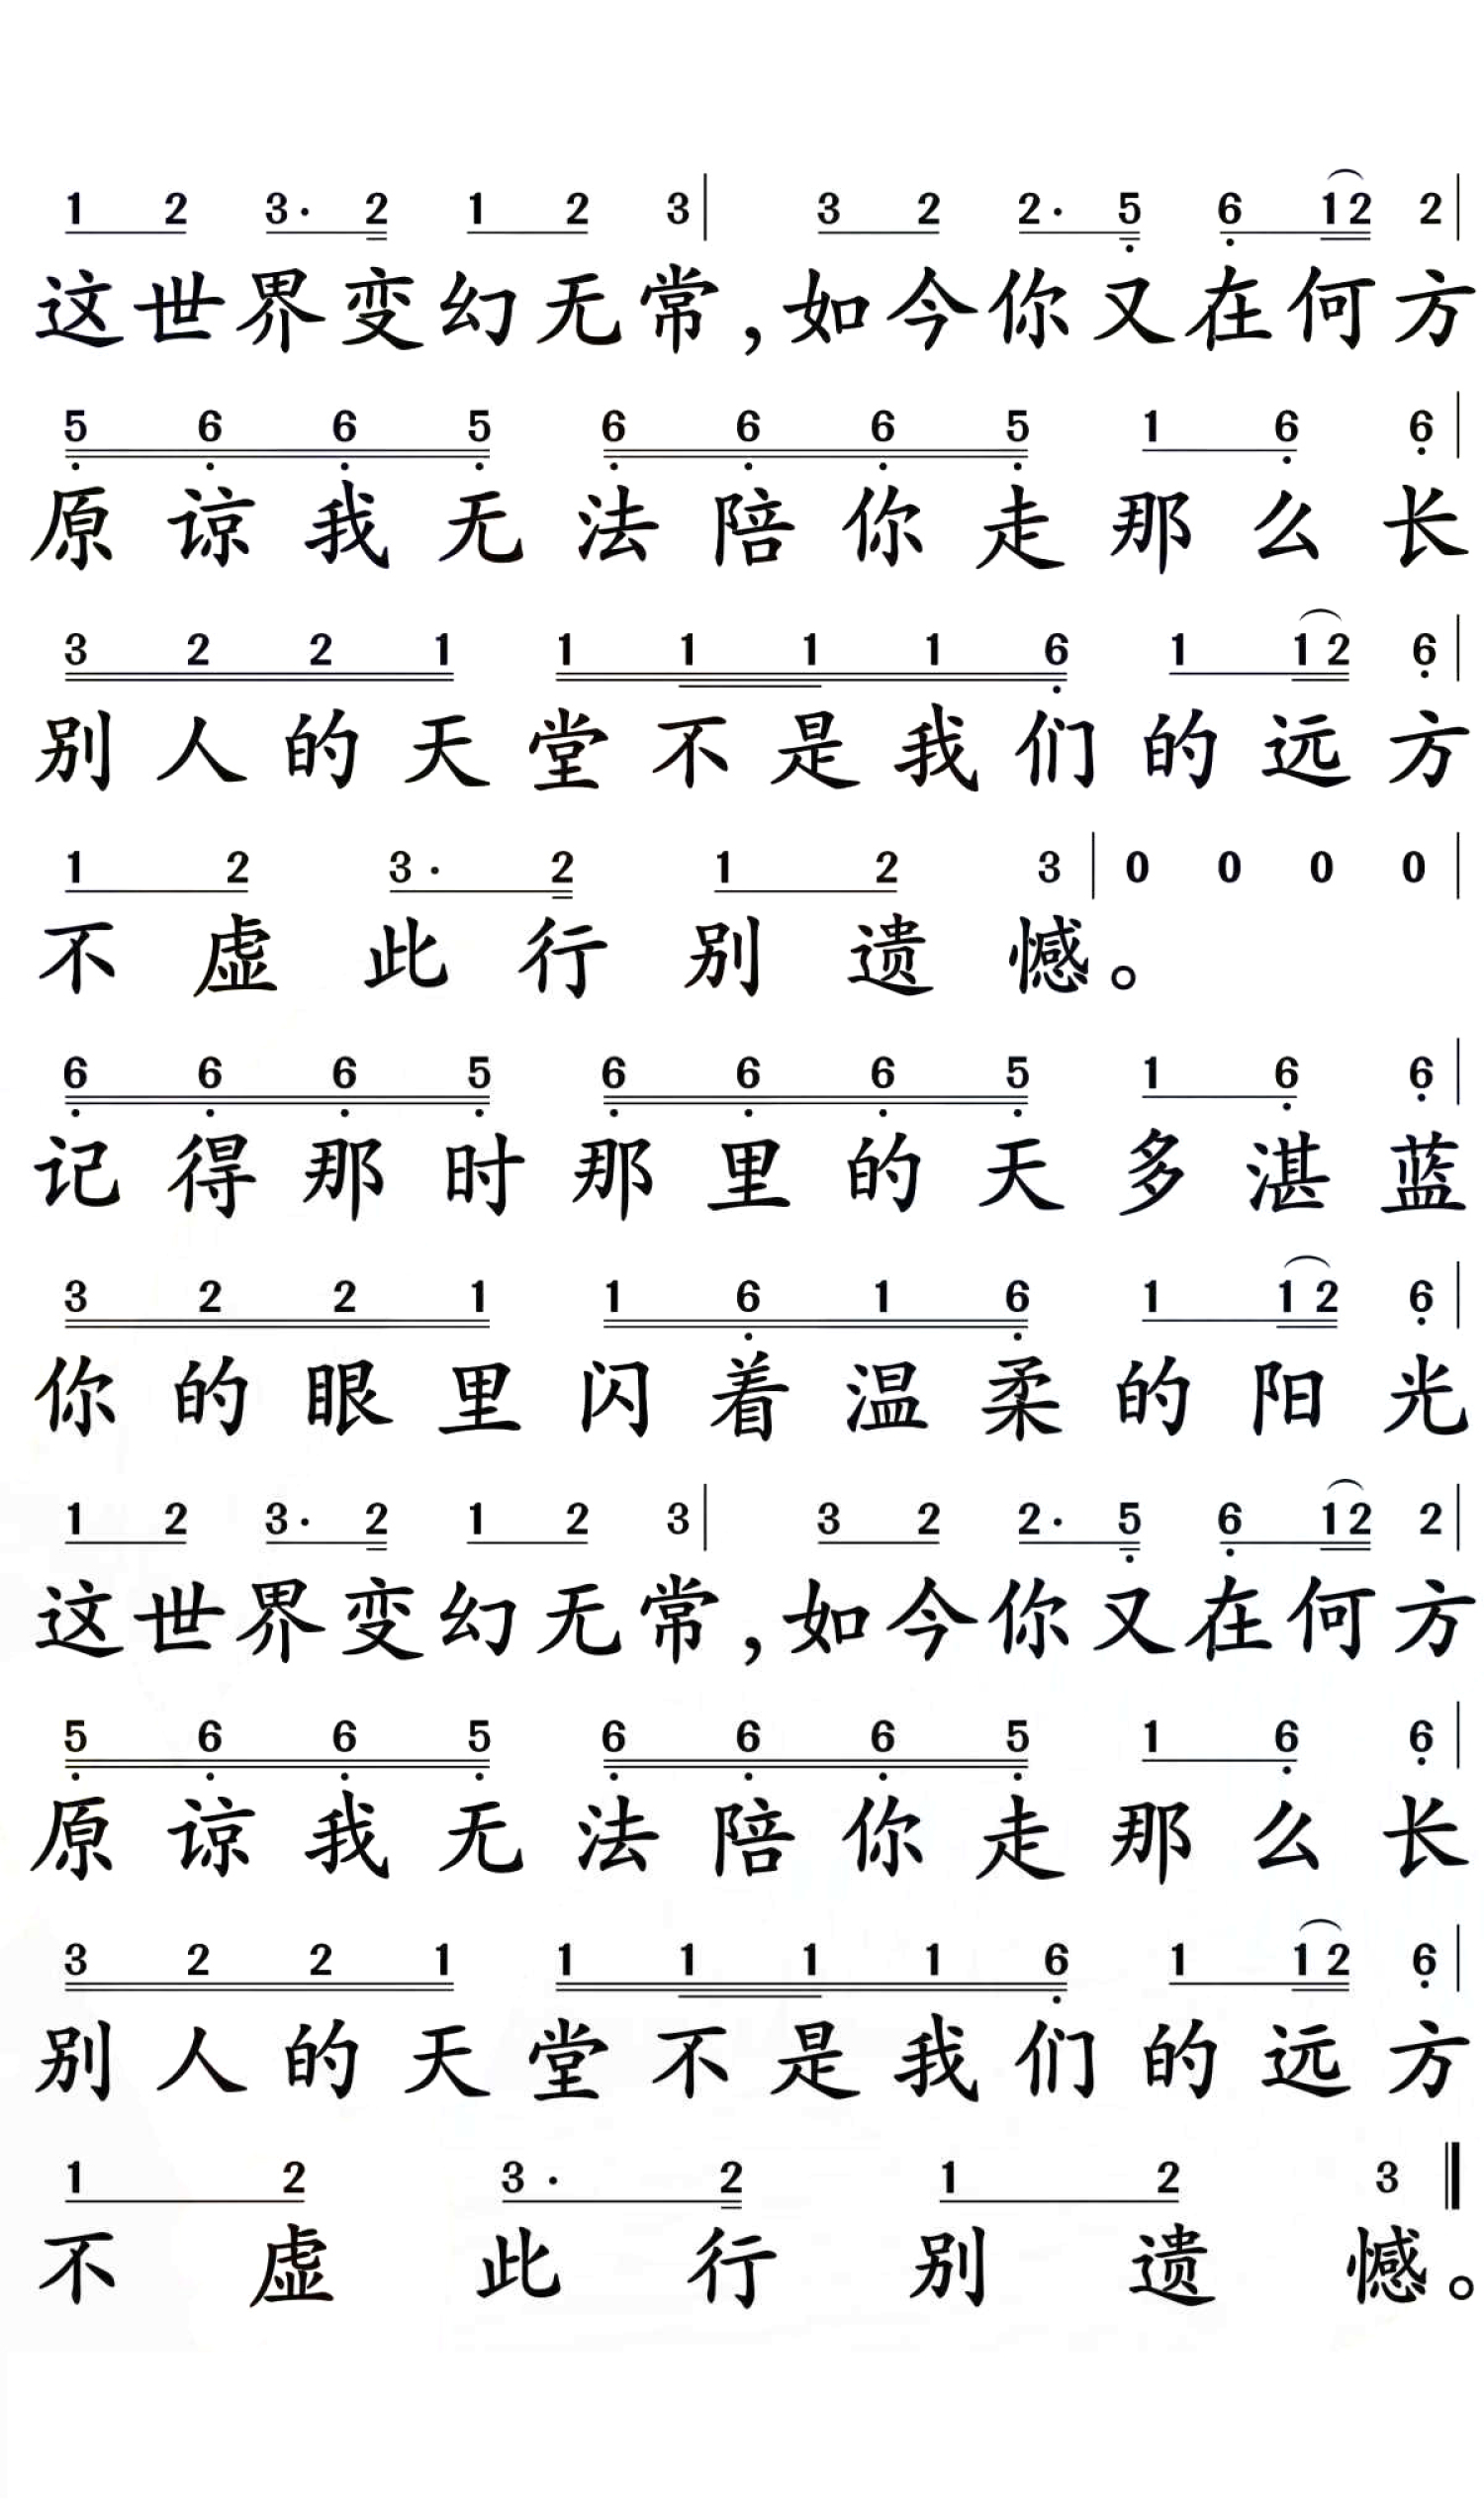 1 2 3· 2 1 2 3| 3 2 2· 5 6 12 2|
这世界变幻无常，如今你又在何方
5 6 6 5 6 6 6 5 1 6 6|
原谅我无法陪你走那么长
3 2 2 1 1 1 1 1 6 1 12 6|
别人的天堂不是我们的远方
1 2 3· 2 1 2 3| 0 0 0 0|
不虚此行别遗憾。
6 6 6 5 6 6 6 5 1 6 6|
记得那时那里的天多湛蓝
3 2 2 1 1 6 1 6 1 12 6|
你的眼里闪着温柔的阳光
1 2 3· 2 1 2 3| 3 2 2· 5 6 12 2|
这世界变幻无常，如今你又在何方
5 6 6 5 6 6 6 5 1 6 6|
原谅我无法陪你走那么长
3 2 2 1 1 1 1 1 6 1 12 6|
别人的天堂不是我们的远方
1 2 3· 2 1 2 3‖
不虚此行别遗憾。